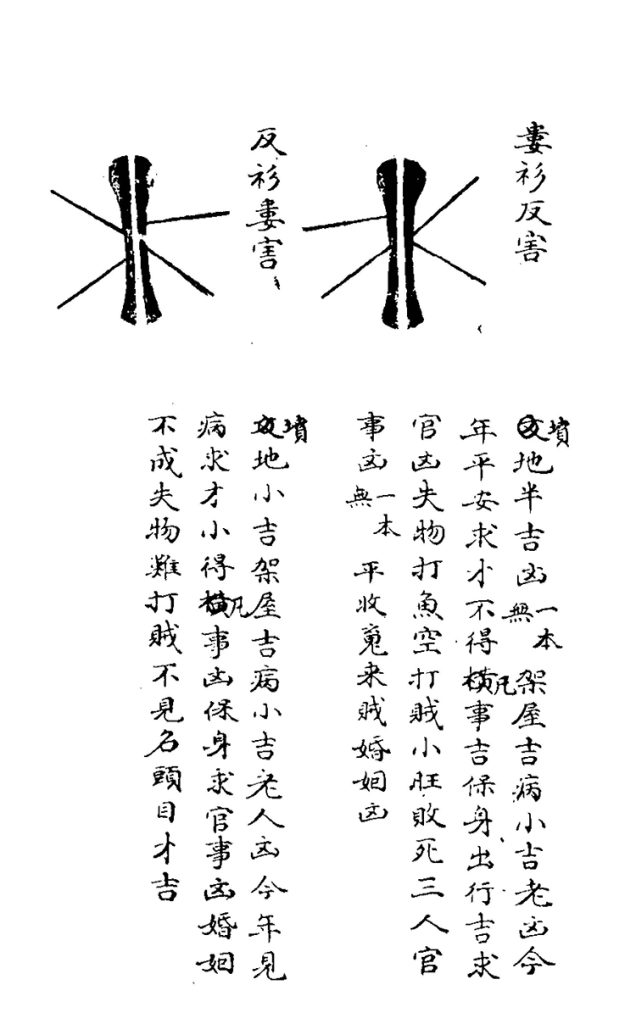 婁衫反害
墳地半吉凶一本無架屋吉病小吉老凶今
年平安求才不得凡事吉保身出行吉求
官凶失物打魚空打賊小旺敗死三人官
事凶一本無平收嵬来賊婚姻凶
反衫婁害
墳地小吉架屋吉病小吉老人凶今年見
病求才小得凡事凶保身求官事凶婚姻
不成失物難打賊不見名頭目才吉